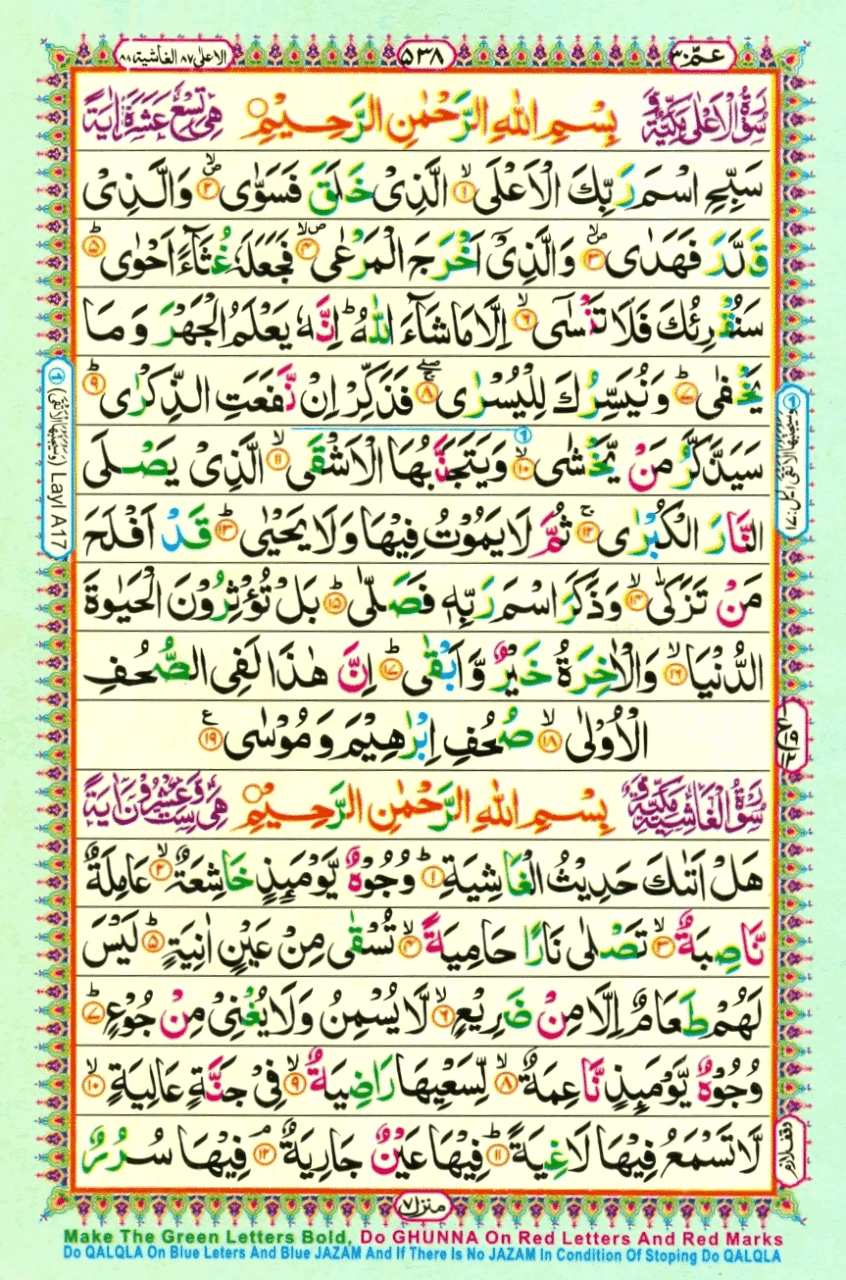 عمّ ٣٠
٥٣٨
الاعلٰى ٨٧ الغاشية ٨٨
سُوْرَةُ الْاَعْلٰى مَكِّيَّةٌ بِسْمِ اللّٰهِ الرَّحْمٰنِ الرَّحِيْمِ هِيَ تِسْعَ عَشَرَةَ اٰيَةً
سَبِّحِ اسْمَ رَبِّكَ الْاَعْلَى ۙ﴿۱﴾ الَّذِىْ خَلَقَ فَسَوّٰى ۙ﴿۲﴾ وَالَّذِىْ
قَدَّرَ فَهَدٰى ۙ﴿۳﴾ وَالَّذِىْۤ اَخْرَجَ الْمَرْعٰى ۙ﴿۴﴾ فَجَعَلَهٗ غُثَآءً اَحْوٰى ؕ﴿۵﴾
سَنُقْرِئُكَ فَلَا تَنْسٰٓى ۙ﴿۶﴾ اِلَّا مَا شَآءَ اللّٰهُ ؕ اِنَّهٗ يَعْلَمُ الْجَهْرَ وَ مَا
يَخْفٰى ؕ﴿۷﴾ وَنُيَسِّرُكَ لِلْيُسْرٰى ۖۚ﴿۸﴾ فَذَكِّرْ اِنْ نَّفَعَتِ الذِّكْرٰى ؕ﴿۹﴾
سَيَذَّكَّرُ مَنْ يَّخْشٰى ۙ﴿۱۰﴾ وَيَتَجَنَّبُهَا الْاَشْقَى ۙ﴿۱۱﴾ الَّذِىْ يَصْلَى
النَّارَ الْكُبْرٰى ۚ﴿۱۲﴾ ثُمَّ لَا يَمُوْتُ فِيْهَا وَلَا يَحْيٰى ؕ﴿۱۳﴾ قَدْ اَفْلَحَ
مَنْ تَزَكّٰى ۙ﴿۱۴﴾ وَذَكَرَ اسْمَ رَبِّهٖ فَصَلّٰى ؕ﴿۱۵﴾ بَلْ تُؤْثِرُوْنَ الْحَيٰوةَ
الدُّنْيَا ۙ﴿۱۶﴾ وَالْاٰخِرَةُ خَيْرٌ وَّاَبْقٰى ؕ﴿۱۷﴾ اِنَّ هٰذَا لَفِى الصُّحُفِ
الْاُوْلٰى ۙ﴿۱۸﴾ صُحُفِ اِبْرٰهِيْمَ وَمُوْسٰى ﴿۱۹﴾ ع
سُوْرَةُ الْغَاشِيَةِ مَكِّيَّةٌ بِسْمِ اللّٰهِ الرَّحْمٰنِ الرَّحِيْمِ هِيَ سِتٌّ وَّعِشْرُوْنَ اٰيَةً
هَلْ اَتٰىكَ حَدِيْثُ الْغَاشِيَةِ ؕ﴿۱﴾ وُجُوْهٌ يَّوْمَئِذٍ خَاشِعَةٌ ۙ﴿۲﴾ عَامِلَةٌ
نَّاصِبَةٌ ۙ﴿۳﴾ تَصْلٰى نَارًا حَامِيَةً ۙ﴿۴﴾ تُسْقٰى مِنْ عَيْنٍ اٰنِيَةٍ ؕ﴿۵﴾ لَيْسَ
لَهُمْ طَعَامٌ اِلَّا مِنْ ضَرِيْعٍ ۙ﴿۶﴾ لَّا يُسْمِنُ وَلَا يُغْنِىْ مِنْ جُوْعٍ ؕ﴿۷﴾
وُجُوْهٌ يَّوْمَئِذٍ نَّاعِمَةٌ ۙ﴿۸﴾ لِّسَعْيِهَا رَاضِيَةٌ ۙ﴿۹﴾ فِىْ جَنَّةٍ عَالِيَةٍ ۙ﴿۱۰﴾
لَّا تَسْمَعُ فِيْهَا لَاغِيَةً ؕ﴿۱۱﴾ فِيْهَا عَيْنٌ جَارِيَةٌ ۘ﴿۱۲﴾ فِيْهَا سُرُرٌ
Layl A 17
وقف لازم
منزل ٧
Make The Green Letters Bold, Do GHUNNA On Red Letters And Red Marks
Do QALQLA On Blue Leters And Blue JAZAM And If There Is No JAZAM In Condition Of Stoping Do QALQLA